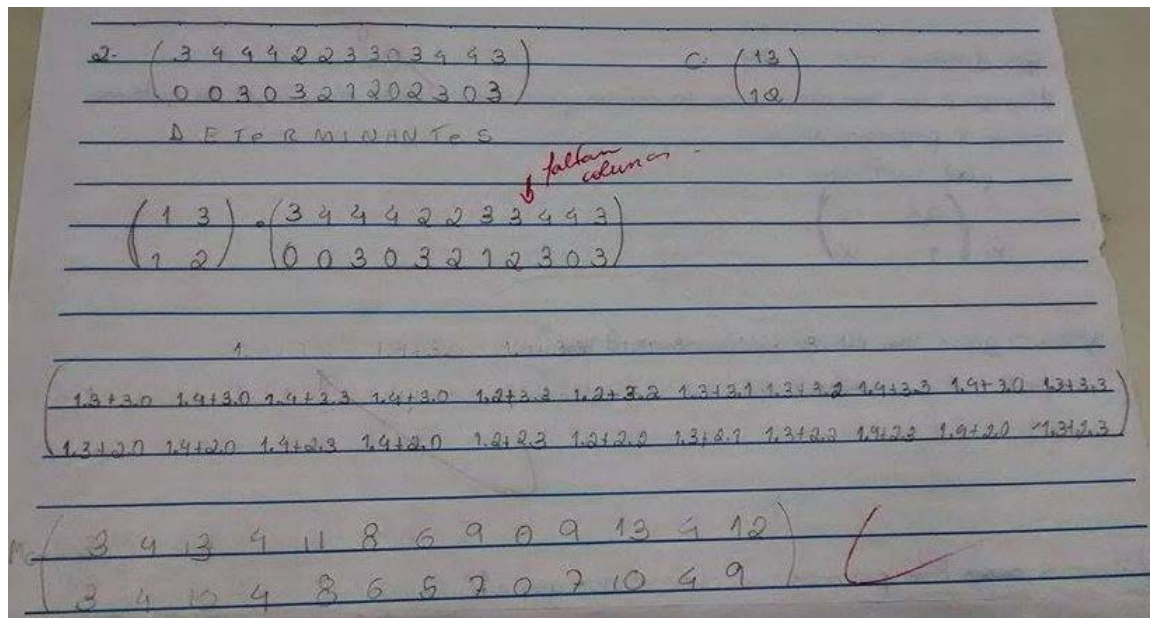 2. ( 3 4 4 4 2 2 3 3 0 3 4 4 3 ) C = ( 1 3 )
( 0 0 3 0 3 2 1 2 0 2 3 0 3 ) ( 1 2 )
D E T e R M I N A N T e S
faltan
columnas
( 1 3 ) . ( 3 4 4 4 2 2 3 3 4 4 3 )
( 1 2 ) ( 0 0 3 0 3 2 1 2 3 0 3 )
1.
( 1.3+3.0 1.4+3.0 1.4+3.3 1.4+3.0 1.2+3.3 1.2+3.2 1.3+3.1 1.3+3.2 1.4+3.3 1.4+3.0 1.3+3.3 )
( 1.3+2.0 1.4+2.0 1.4+2.3 1.4+2.0 1.2+2.3 1.2+2.2 1.3+2.1 1.3+2.2 1.4+2.3 1.4+2.0 1.3+2.3 )
( 3 4 13 4 11 8 6 9 0 9 13 4 12 )
( 3 4 10 4 8 6 5 7 0 7 10 4 9 )